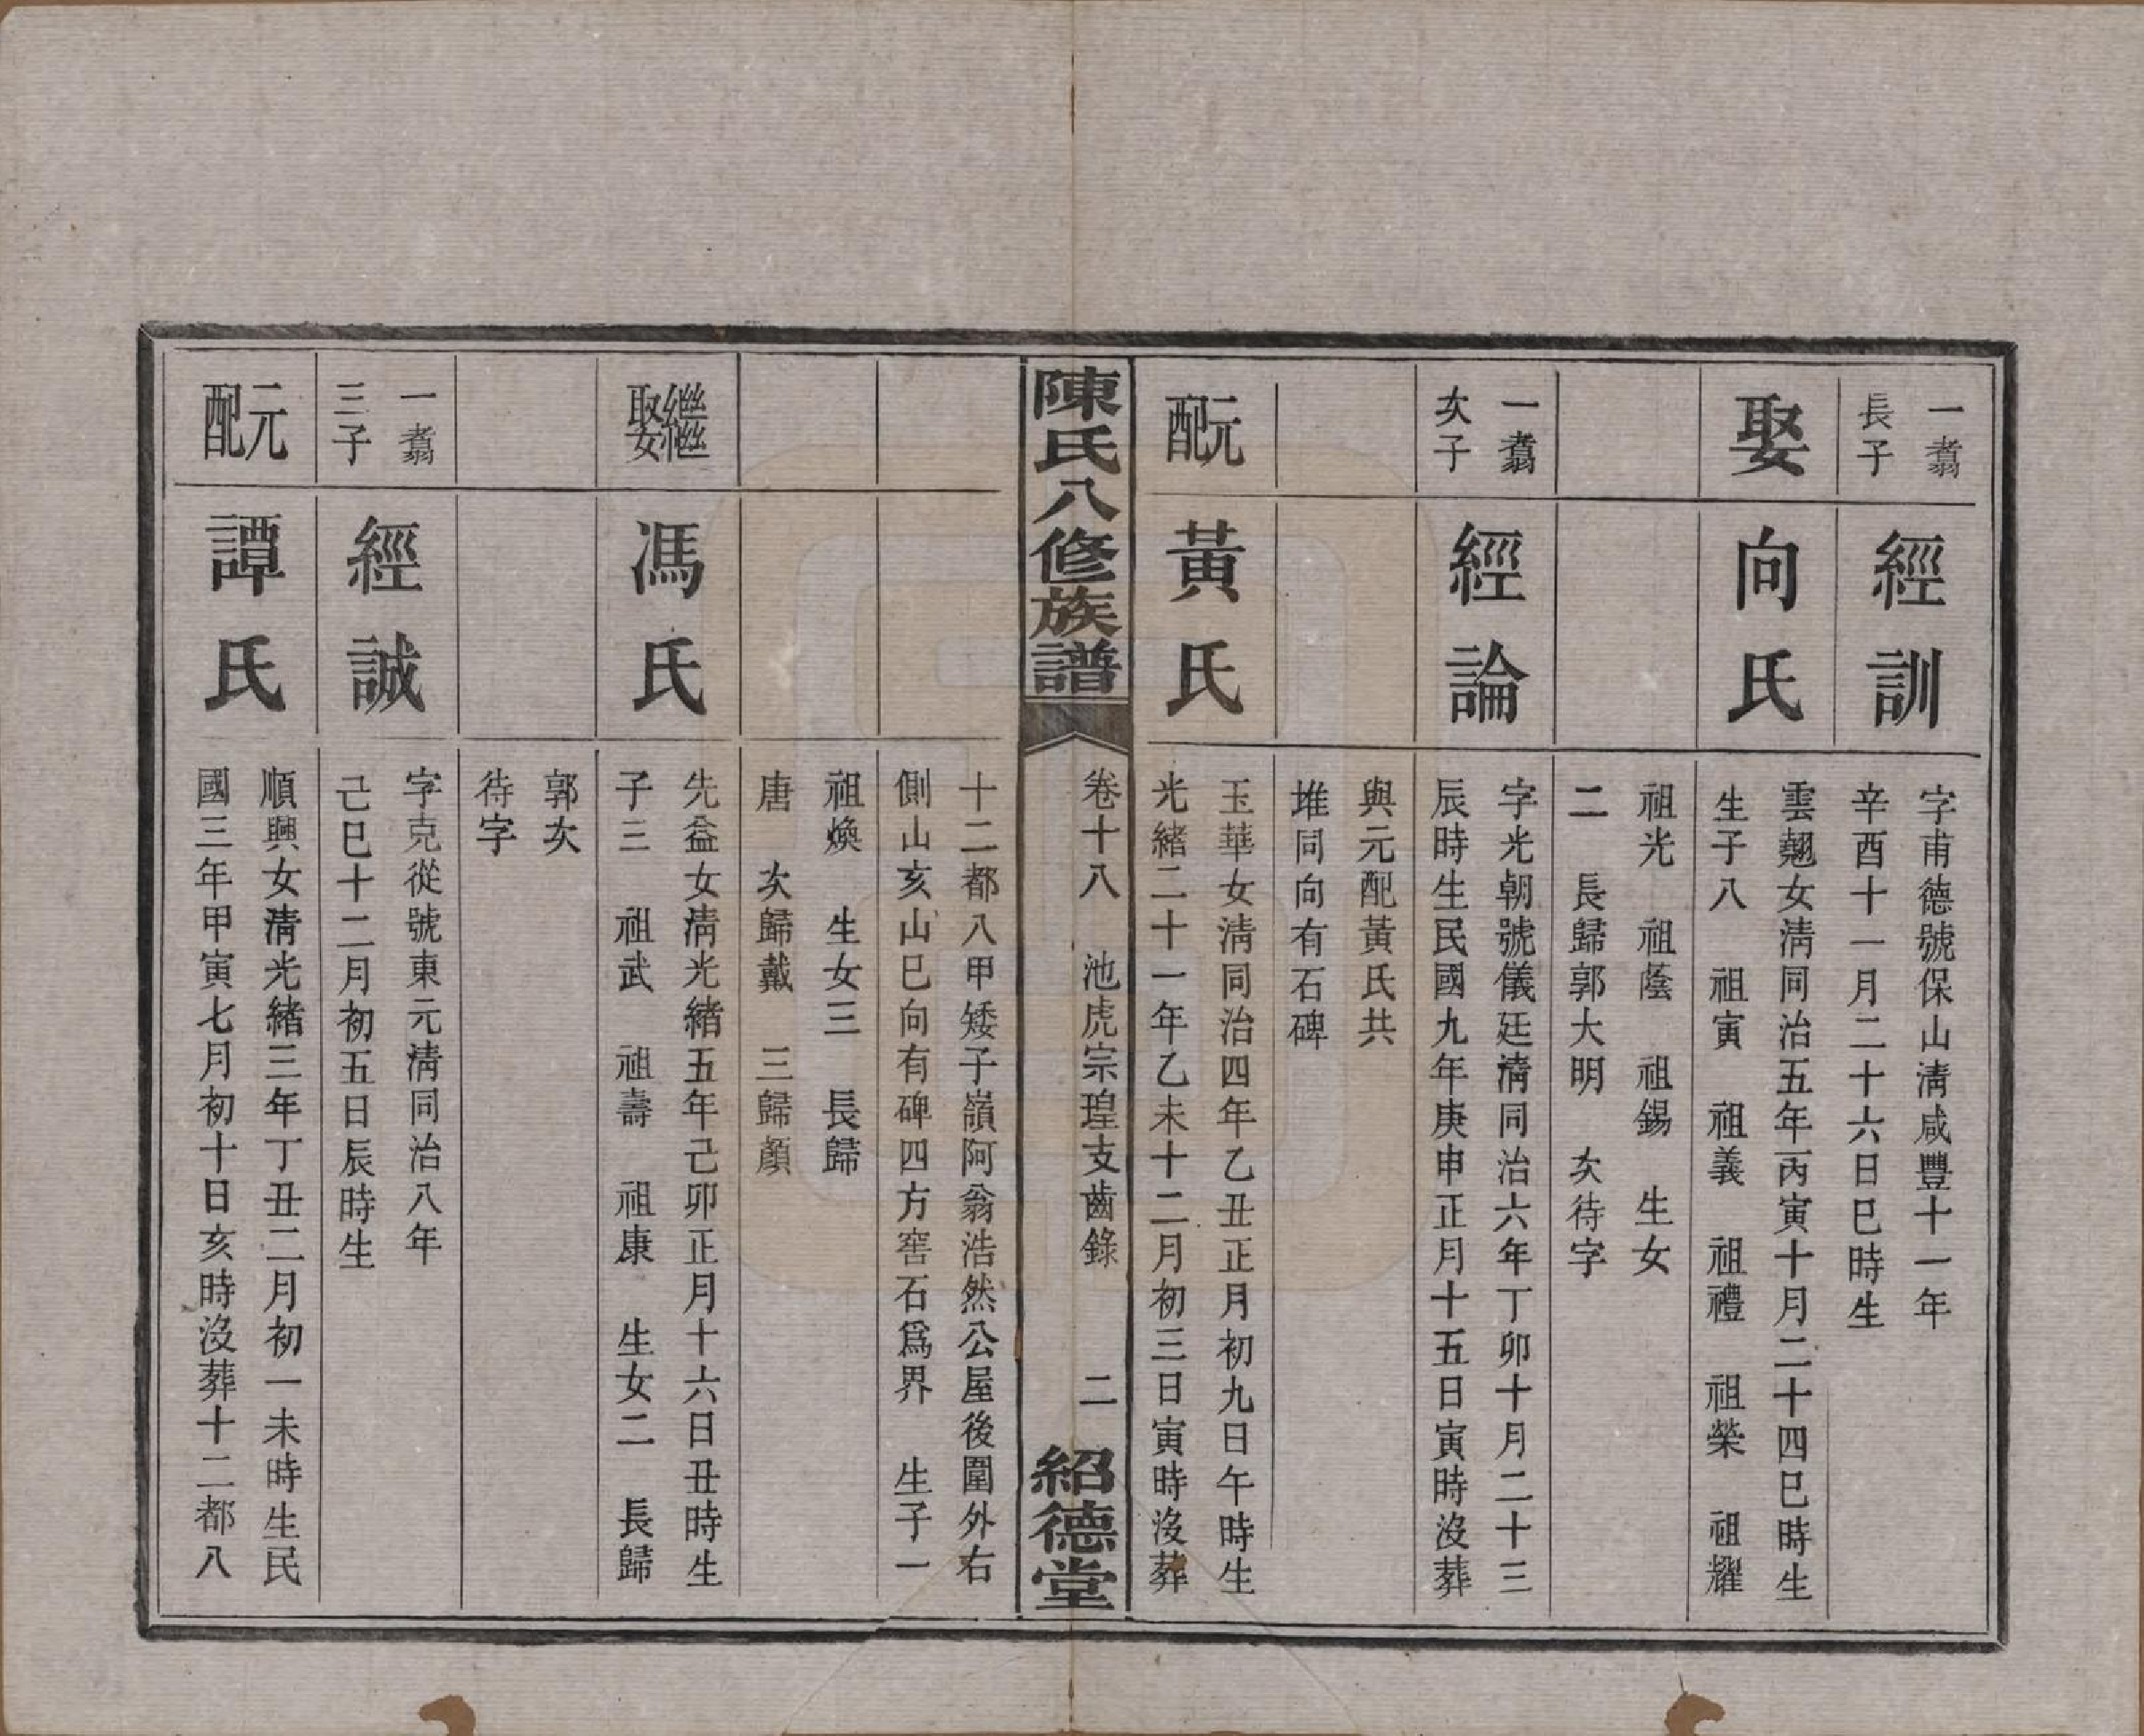 一翥
長子
經訓
字甫德號保山淸咸豐十一年
辛酉十一月二十六日巳時生
娶
向氏
雲翹女淸同治五年丙寅十月二十四巳時生
生子八　祖寅　祖義　祖禮　祖榮　祖耀
祖光　祖蔭　祖錫　生女
二　長歸郭大明　次待字
一翥
次子
經論
字光朝號儀廷淸同治六年丁卯十月二十三
辰時生民國九年庚申正月十五日寅時沒葬
與元配黃氏共
堆同向有石碑
元配
黃氏
玉華女淸同治四年乙丑正月初九日午時生
光緒二十一年乙未十二月初三日寅時沒葬
陳氏八修族譜
卷十八　池虎宗瑝支齒錄　二
紹德堂
十二都八甲矮子嶺阿翁浩然公屋後圍外右
側山亥山巳向有碑四方窖石爲界　生子一
祖煥　生女三　長歸
唐　次歸戴　三歸顏
繼娶
馮氏
先益女淸光緒五年己卯正月十六日丑時生
子三　祖武　祖壽　祖康　生女二　長歸
郭次
待字
一翥
三子
經誠
字克從號東元淸同治八年
己巳十二月初五日辰時生
元配
譚氏
順興女淸光緒三年丁丑二月初一未時生民
國三年甲寅七月初十日亥時沒葬十二都八